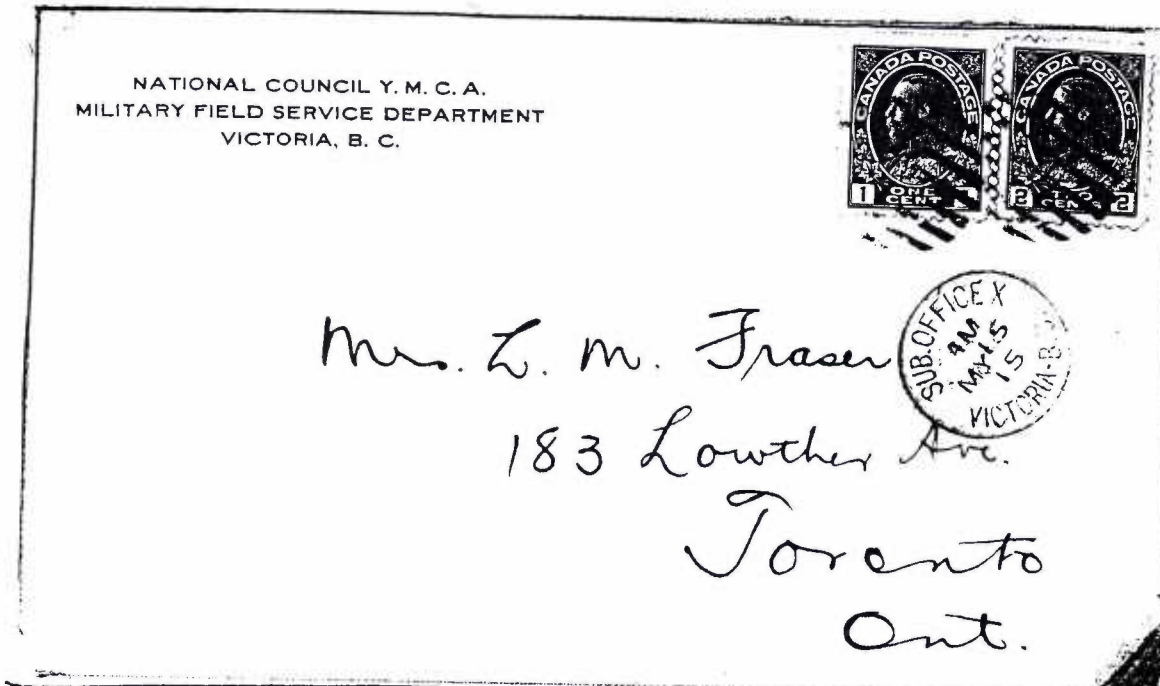 NATIONAL COUNCIL Y. M. C. A.
MILITARY FIELD SERVICE DEPARTMENT
VICTORIA, B. C.
CANADA POSTAGE
1 ONE CENT
CANADA POSTAGE
2 TWO CENTS 2
SUB. OFFICE X
AM
MY 15
15
VICTORIA-B.
Mrs. L. M. Fraser
183 Lowther Ave.
Toronto
Ont.